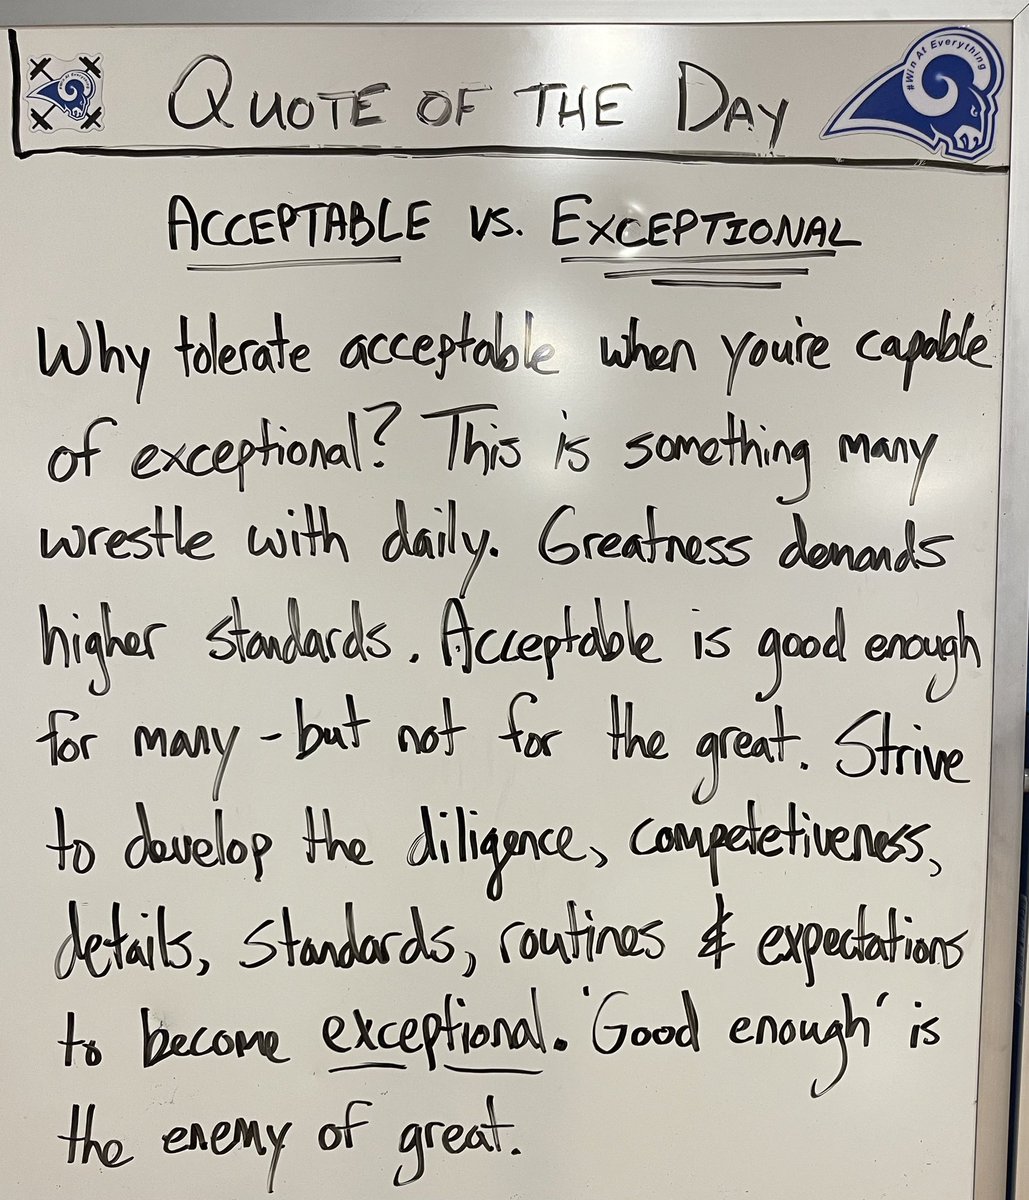 QUOTE OF THE DAY
#Win At Everything
ACCEPTABLE VS. EXCEPTIONAL
Why tolerate acceptable when you're capable
of exceptional? This is something many
wrestle with daily. Greatness demands
higher standards. Acceptable is good enough
for many - but not for the great. Strive
to develop the diligence, competetiveness,
details, standards, routines & expectations
to become exceptional. 'Good enough' is
the enemy of great.